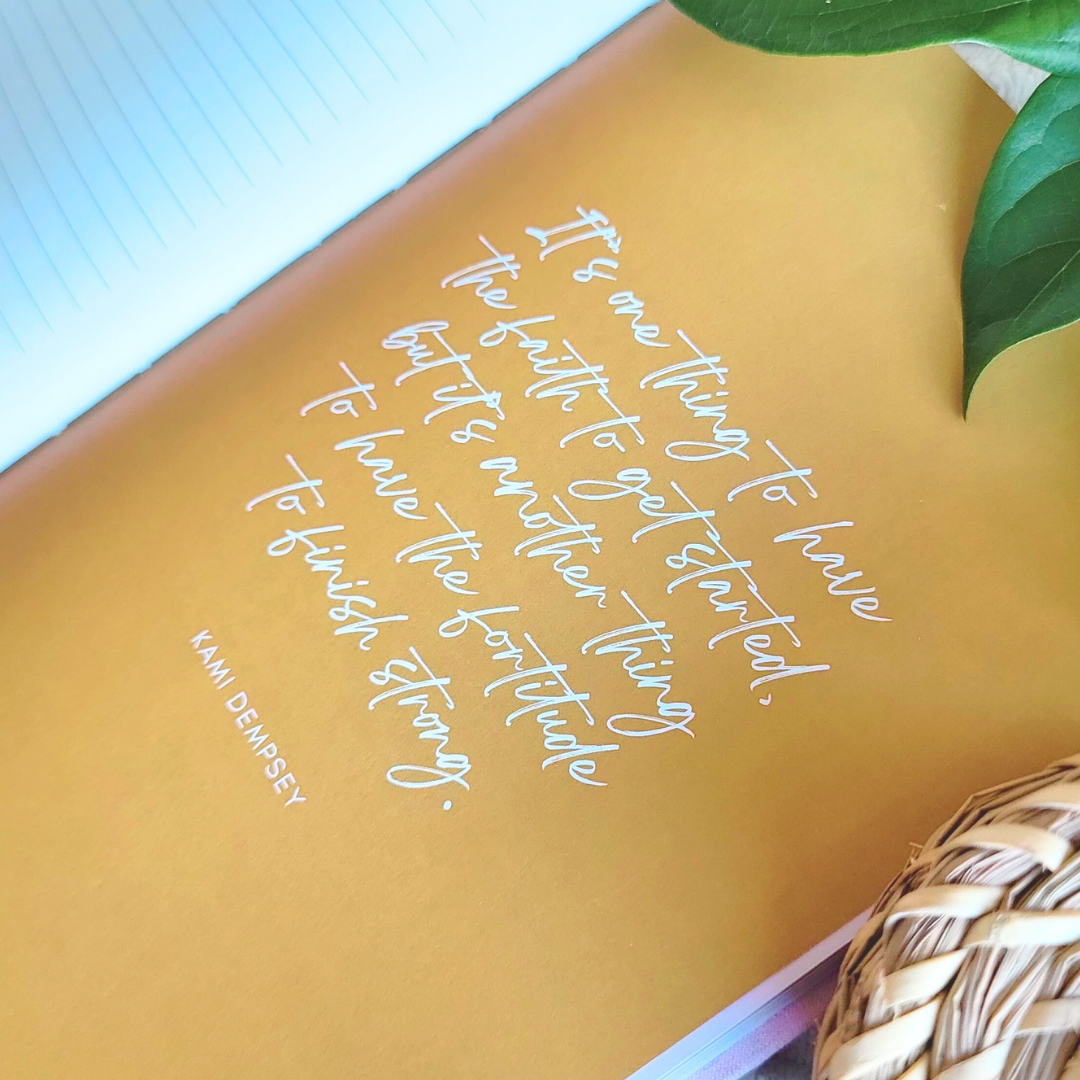 It's one thing to have
the faith to get started,
but it's another thing
to have the fortitude
to finish strong.
KAMI DEMPSEY